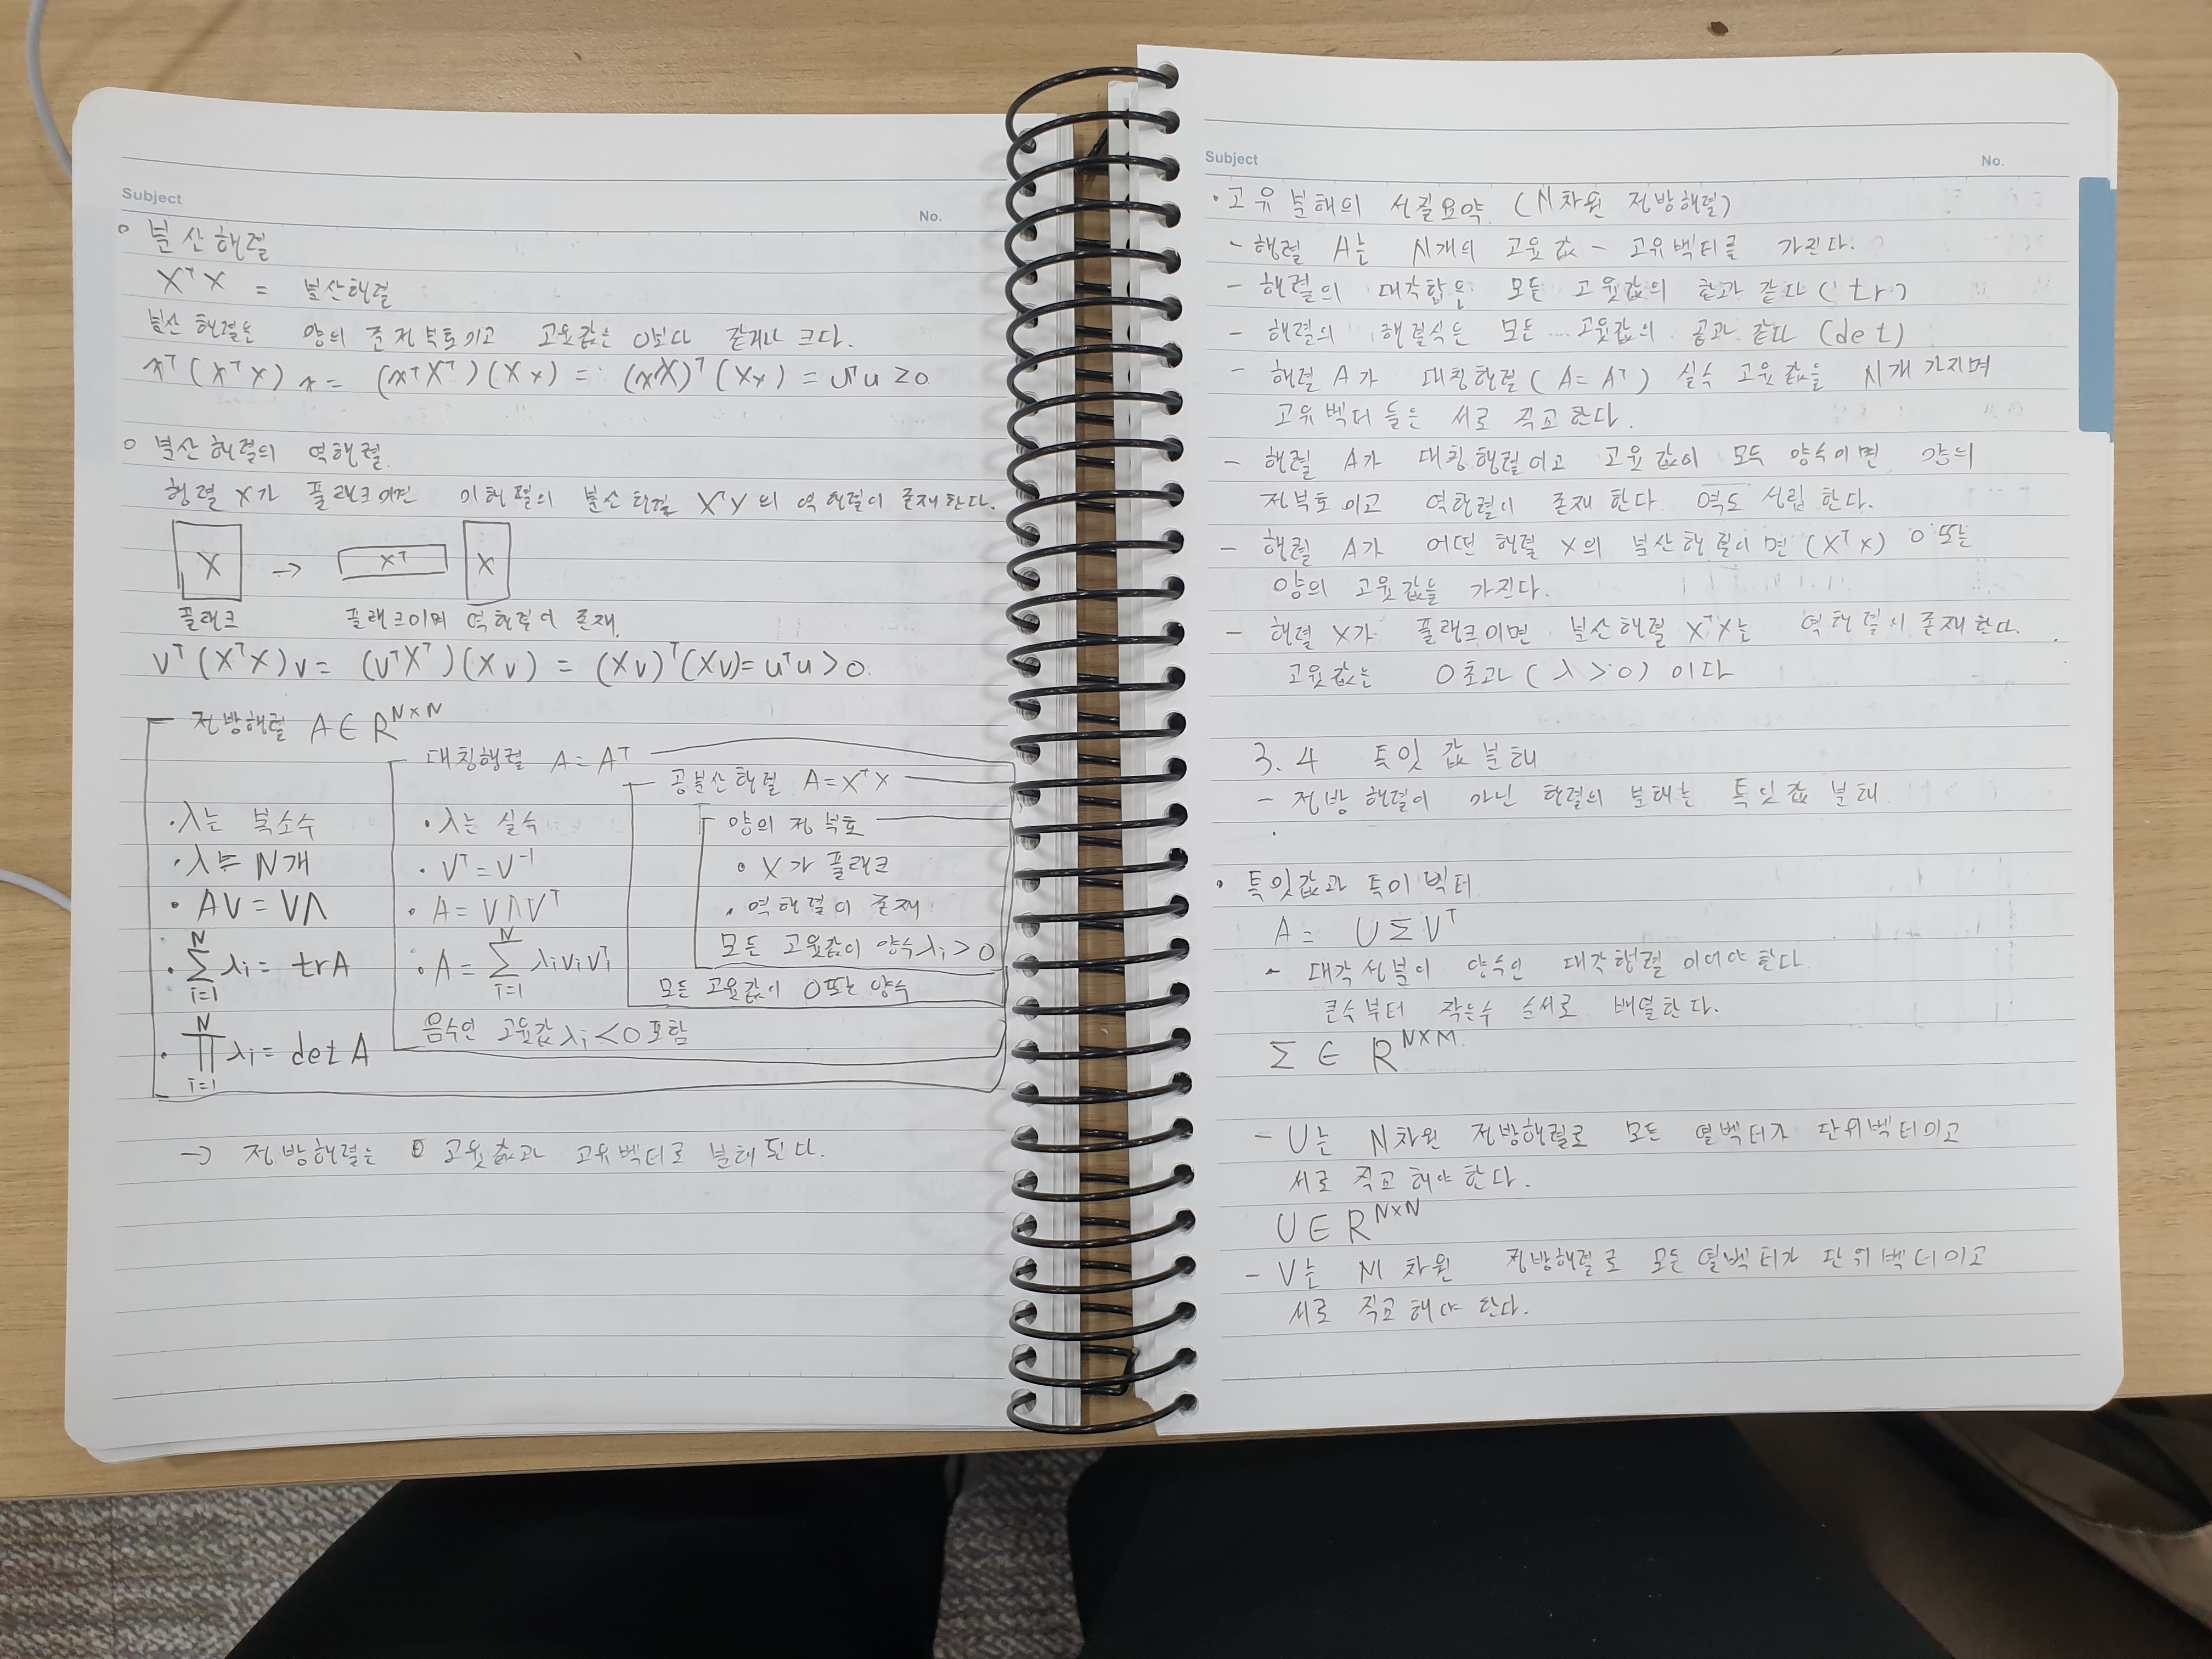 Subject
No.
◦ 분산행렬
XᵀX = 분산행렬
분산 행렬은 양의 준정부호이고 고윳값은 0보다 같거나 크다.
xᵀ(XᵀX)x = (xᵀXᵀ)(Xx) = (xX)ᵀ(Xx) = uᵀu ≥ 0
◦ 분산행렬의 역행렬.
행렬 X가 풀랭크이면 이 행렬의 분산 행렬 XᵀX의 역행렬이 존재한다.
X → Xᵀ X
플래크 풀래크이면 역행렬이 존재.
Vᵀ(XᵀX)v = (VᵀXᵀ)(Xv) = (Xv)ᵀ(Xv) = uᵀu > 0.
정방행렬 A ∈ R^{N×N}
대칭행렬 A = Aᵀ
공분산행렬 A = XᵀX
양의 정부호
• λ는 복소수
• λ는 N개
• AV = VΛ
• ∑_{i=1}^{N} λi = trA
• ∏_{i=1}^{N} λi = det A
• λ는 실수
• Vᵀ = V⁻¹
• A = VΛVᵀ
• A = ∑_{i=1}^{N} λiviviᵀ
음수인 고윳값 λi < 0 포함
• X가 풀래크
• 역행렬이 존재
모든 고윳값이 양수 λi > 0
모든 고윳값이 0또는 양수
→ 정방행렬은 고윳값과 고유벡터로 분해된다.
Subject
No.
• 고유분해의 성질요약. (N차원 정방행렬)
- 행렬 A는 N개의 고윳값 - 고유벡터를 가진다.
- 행렬의 대각합은 모든 고윳값의 합과 같다 (tr)
- 행렬의 행렬식은 모든 고윳값의 곱과 같다 (det)
- 행렬 A가 대칭행렬(A = Aᵀ) 실수 고윳값을 N개 가지며
고유벡터 들은 서로 직교한다.
- 행렬 A가 대칭행렬이고 고윳값이 모두 양수이면 양의
정부호이고 역행렬이 존재한다 역도 성립한다.
- 행렬 A가 어떤 행렬 X의 분산행렬이면 (XᵀX) 0 또는
양의 고윳값을 가진다.
- 행렬 X가 풀래크이면 분산행렬 XᵀX는 역행렬이 존재한다.
고윳값은 0초과 (λ > 0) 이다
3.4 특잇값분해
- 정방 행렬이 아닌 행렬의 분해는 특잇값 분해
• 특잇값과 특이벡터
A = UΣVᵀ
- 대각성분이 양수인 대각행렬이어야 한다
큰수부터 작은수 순서로 배열한다.
Σ ∈ R^{N×M}.
- U는 N차원 정방행렬로 모든 열벡터가 단위벡터이고
서로 직교해야 한다.
U ∈ R^{N×N}
- V는 M차원 정방행렬로 모든 열벡터가 단위벡터이고
서로 직교해야 한다.